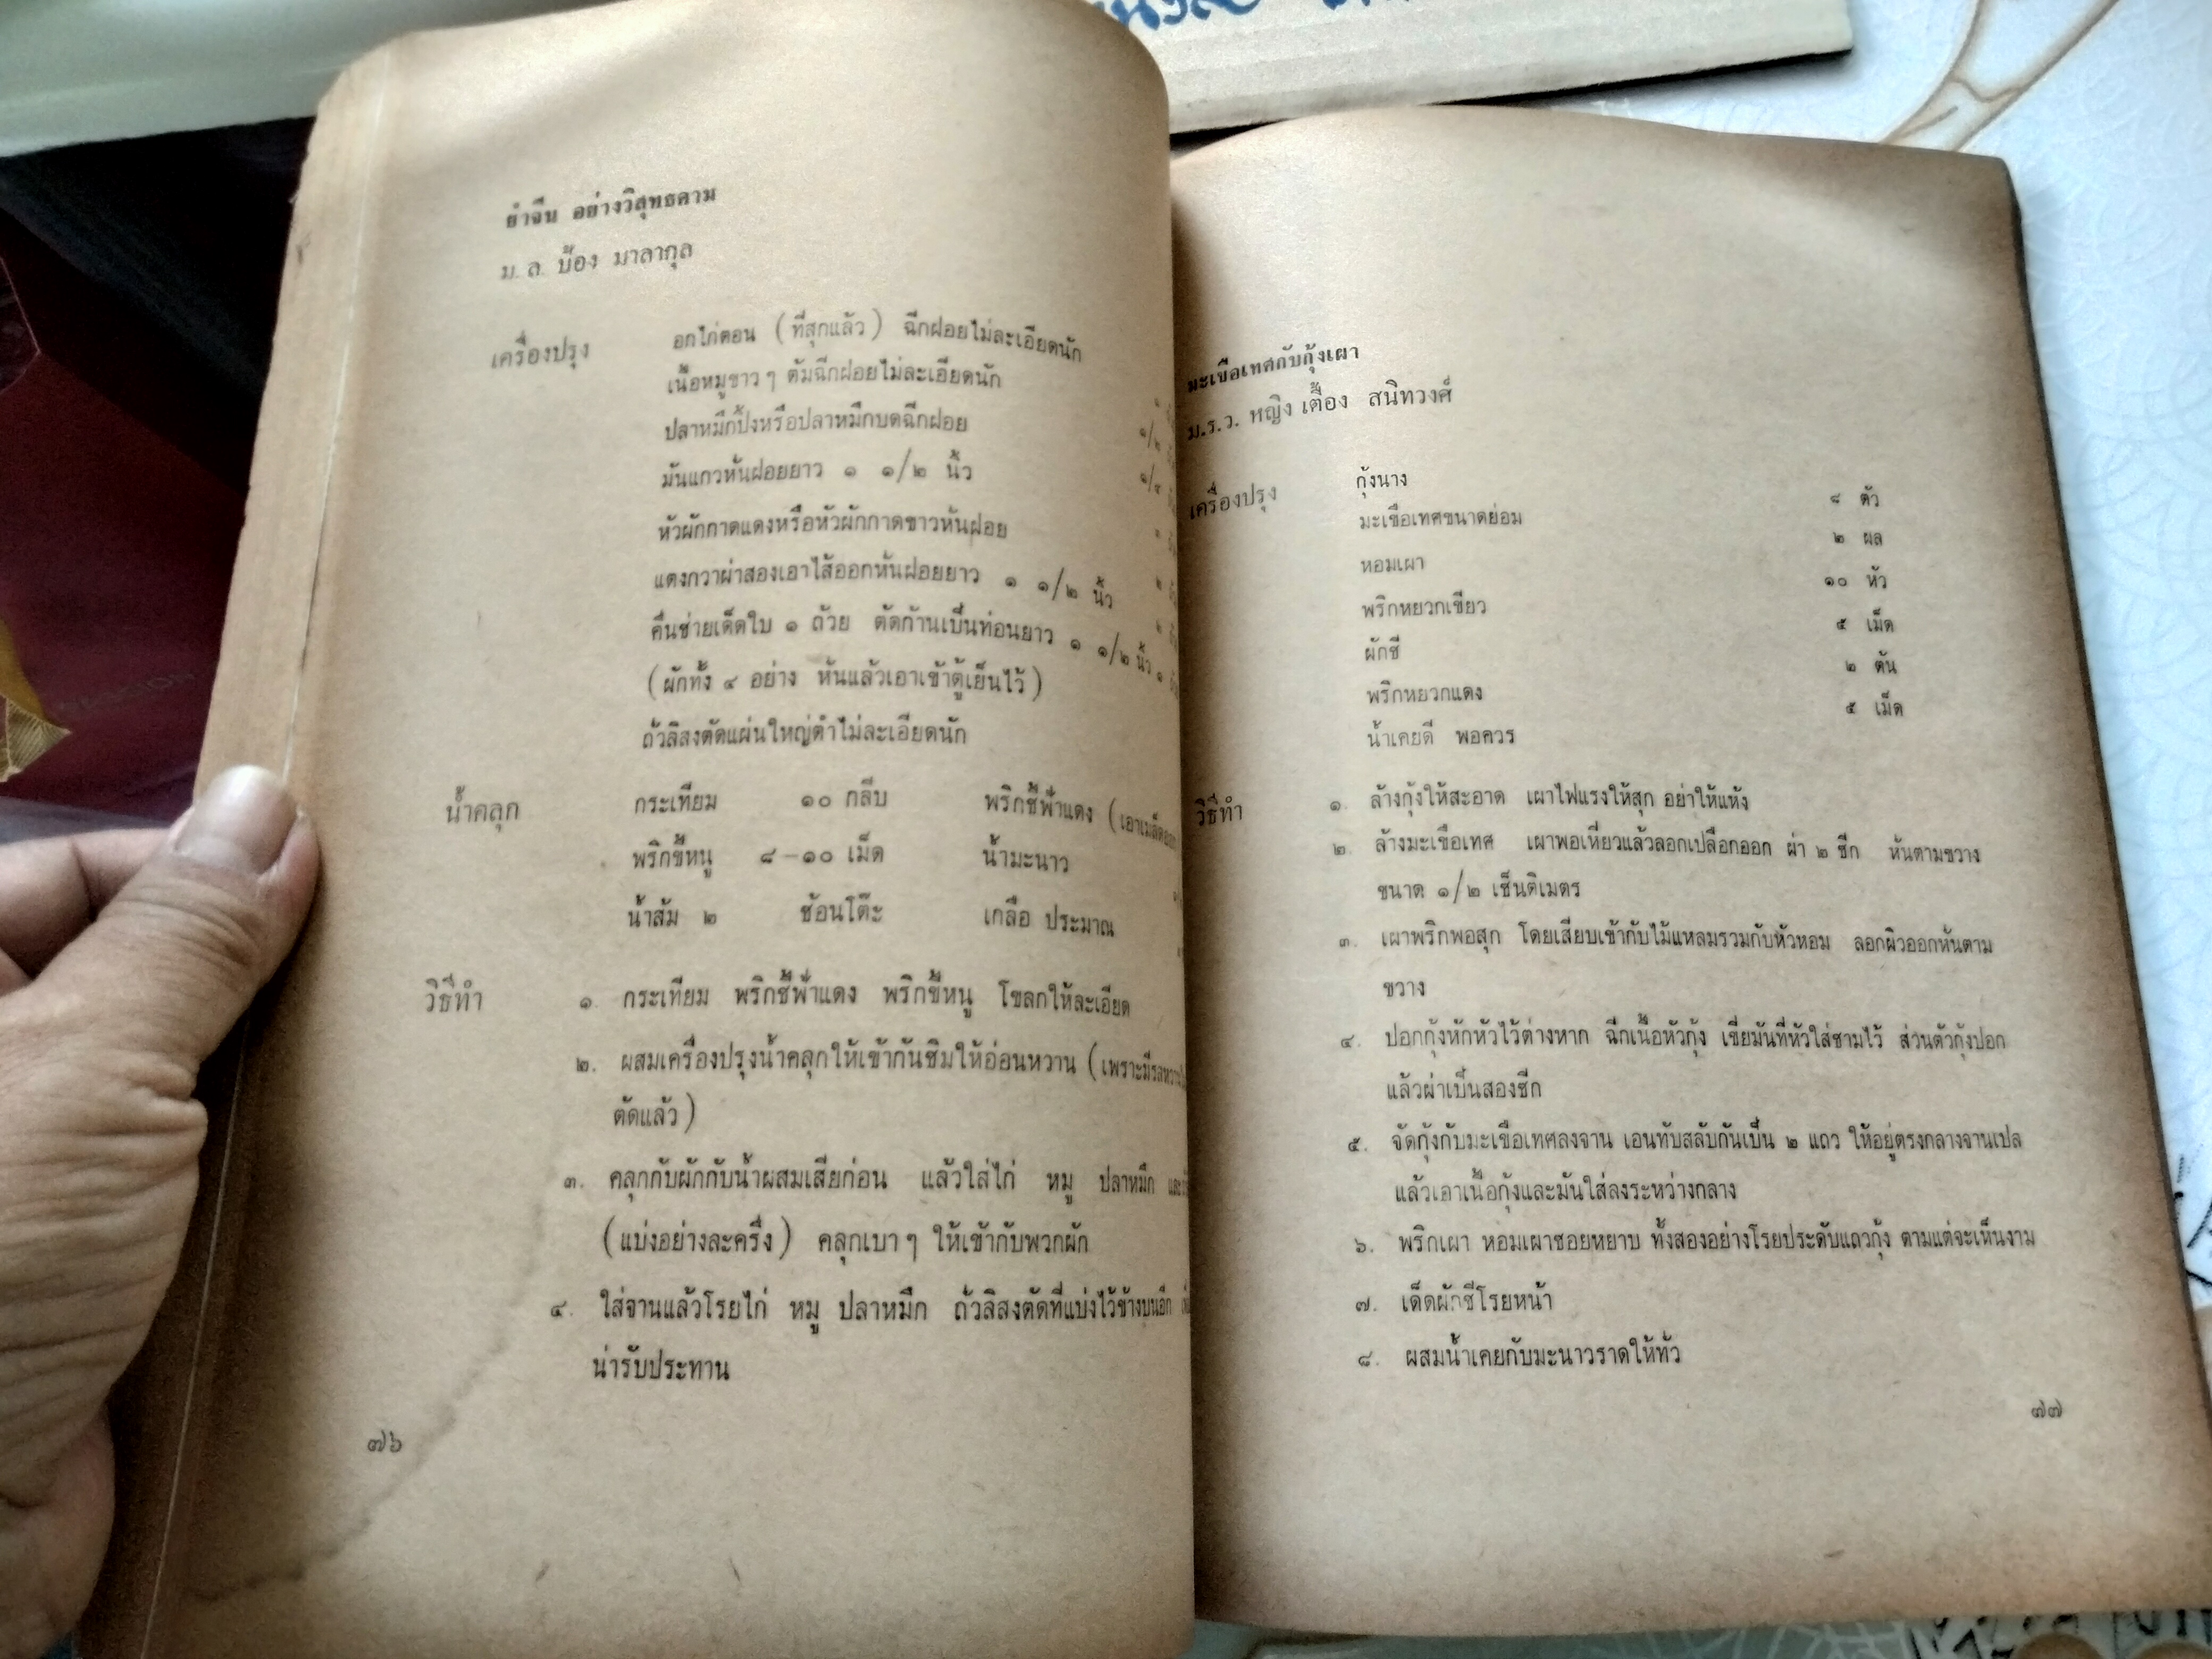 ยำจีน อย่างวิสุทธคาม
ม. ล. ป้อง มาลากุล
เครื่องปรุง อกไก่ตอน (ที่สุกแล้ว) ฉีกฝอยไม่ละเอียดนัก
เนื้อหมูขาว ๆ ต้มฉีกฝอยไม่ละเอียดนัก
ปลาหมึกปิ้งหรือปลาหมึกบดฉีกฝอย ๑/๒
มันแกวหั่นฝอยยาว ๑ ๑/๒ นิ้ว ๑/๔
หัวผักกาดแดงหรือหัวผักกาดขาวหั่นฝอย
แตงกวาผ่าสองเอาไส้ออกหั่นฝอยยาว ๑ ๑/๒ นิ้ว
คื่นช่ายเด็ดใบ ๑ ถ้วย ตัดก้านเป็นท่อนยาว ๑ ๑/๒ นิ้ว ๑
(ผักทั้ง ๔ อย่าง หั่นแล้วเอาเข้าตู้เย็นไว้)
ถั่วลิสงตัดแผ่นใหญ่ตำไม่ละเอียดนัก
น้ำคลุก กระเทียม ๑๐ กลีบ พริกชี้ฟ้าแดง (เอาเม็ดออก
พริกขี้หนู ๘-๑๐ เม็ด น้ำมะนาว
น้ำส้ม ๒ ช้อนโต๊ะ เกลือ ประมาณ
วิธีทำ ๑. กระเทียม พริกชี้ฟ้าแดง พริกขี้หนู โขลกให้ละเอียด
๒. ผสมเครื่องปรุงน้ำคลุกให้เข้ากันชิมให้อ่อนหวาน (เพราะมีรสหวาน
ตัดแล้ว)
๓. คลุกกับผักกับน้ำผสมเสียก่อน แล้วใส่ไก่ หมู ปลาหมึก
(แบ่งอย่างละครึ่ง) คลุกเบา ๆ ให้เข้ากับพวกผัก
๔. ใส่จานแล้วโรยไก่ หมู ปลาหมึก ถั่วลิสงตัดที่แบ่งไว้ข้างบนอีก
น่ารับประทาน
๗๖
มะเขือเทศกับกุ้งเผา
ม.ร.ว. หญิง เตื้อง สนิทวงศ์
เครื่องปรุง กุ้งนาง ๘ ตัว
มะเขือเทศขนาดย่อม ๒ ผล
หอมเผา ๑๐ หัว
พริกหยวกเขียว ๕ เม็ด
ผักชี ๒ ต้น
พริกหยวกแดง ๕ เม็ด
น้ำเคยดี พอควร
วิธีทำ ๑. ล้างกุ้งให้สะอาด เผาไฟแรงให้สุก อย่าให้แห้ง
๒. ล้างมะเขือเทศ เผาพอเหี่ยวแล้วลอกเปลือกออก ผ่า ๒ ซีก หั่นตามขวาง
ขนาด ๑/๒ เซ็นติเมตร
๓. เผาพริกพอสุก โดยเสียบเข้ากับไม้แหลมรวมกับหัวหอม ลอกผิวออกหั่นตาม
ขวาง
๔. ปอกกุ้งหักหัวไว้ต่างหาก ฉีกเนื้อหัวกุ้ง เขี่ยมันที่หัวใส่ชามไว้ ส่วนตัวกุ้งปอก
แล้วผ่าเป็นสองซีก
๕. จัดกุ้งกับมะเขือเทศลงจาน เอนทับสลับกันเป็น ๒ แถว ให้อยู่ตรงกลางจานเปล
แล้วเอาเนื้อกุ้งและมันใส่ลงระหว่างกลาง
๖. พริกเผา หอมเผาซอยหยาบ ทั้งสองอย่างโรยประดับแถวกุ้ง ตามแต่จะเห็นงาม
๗. เด็ดผักชีโรยหน้า
๘. ผสมน้ำเคยกับมะนาวราดให้ทั่ว
๗๗